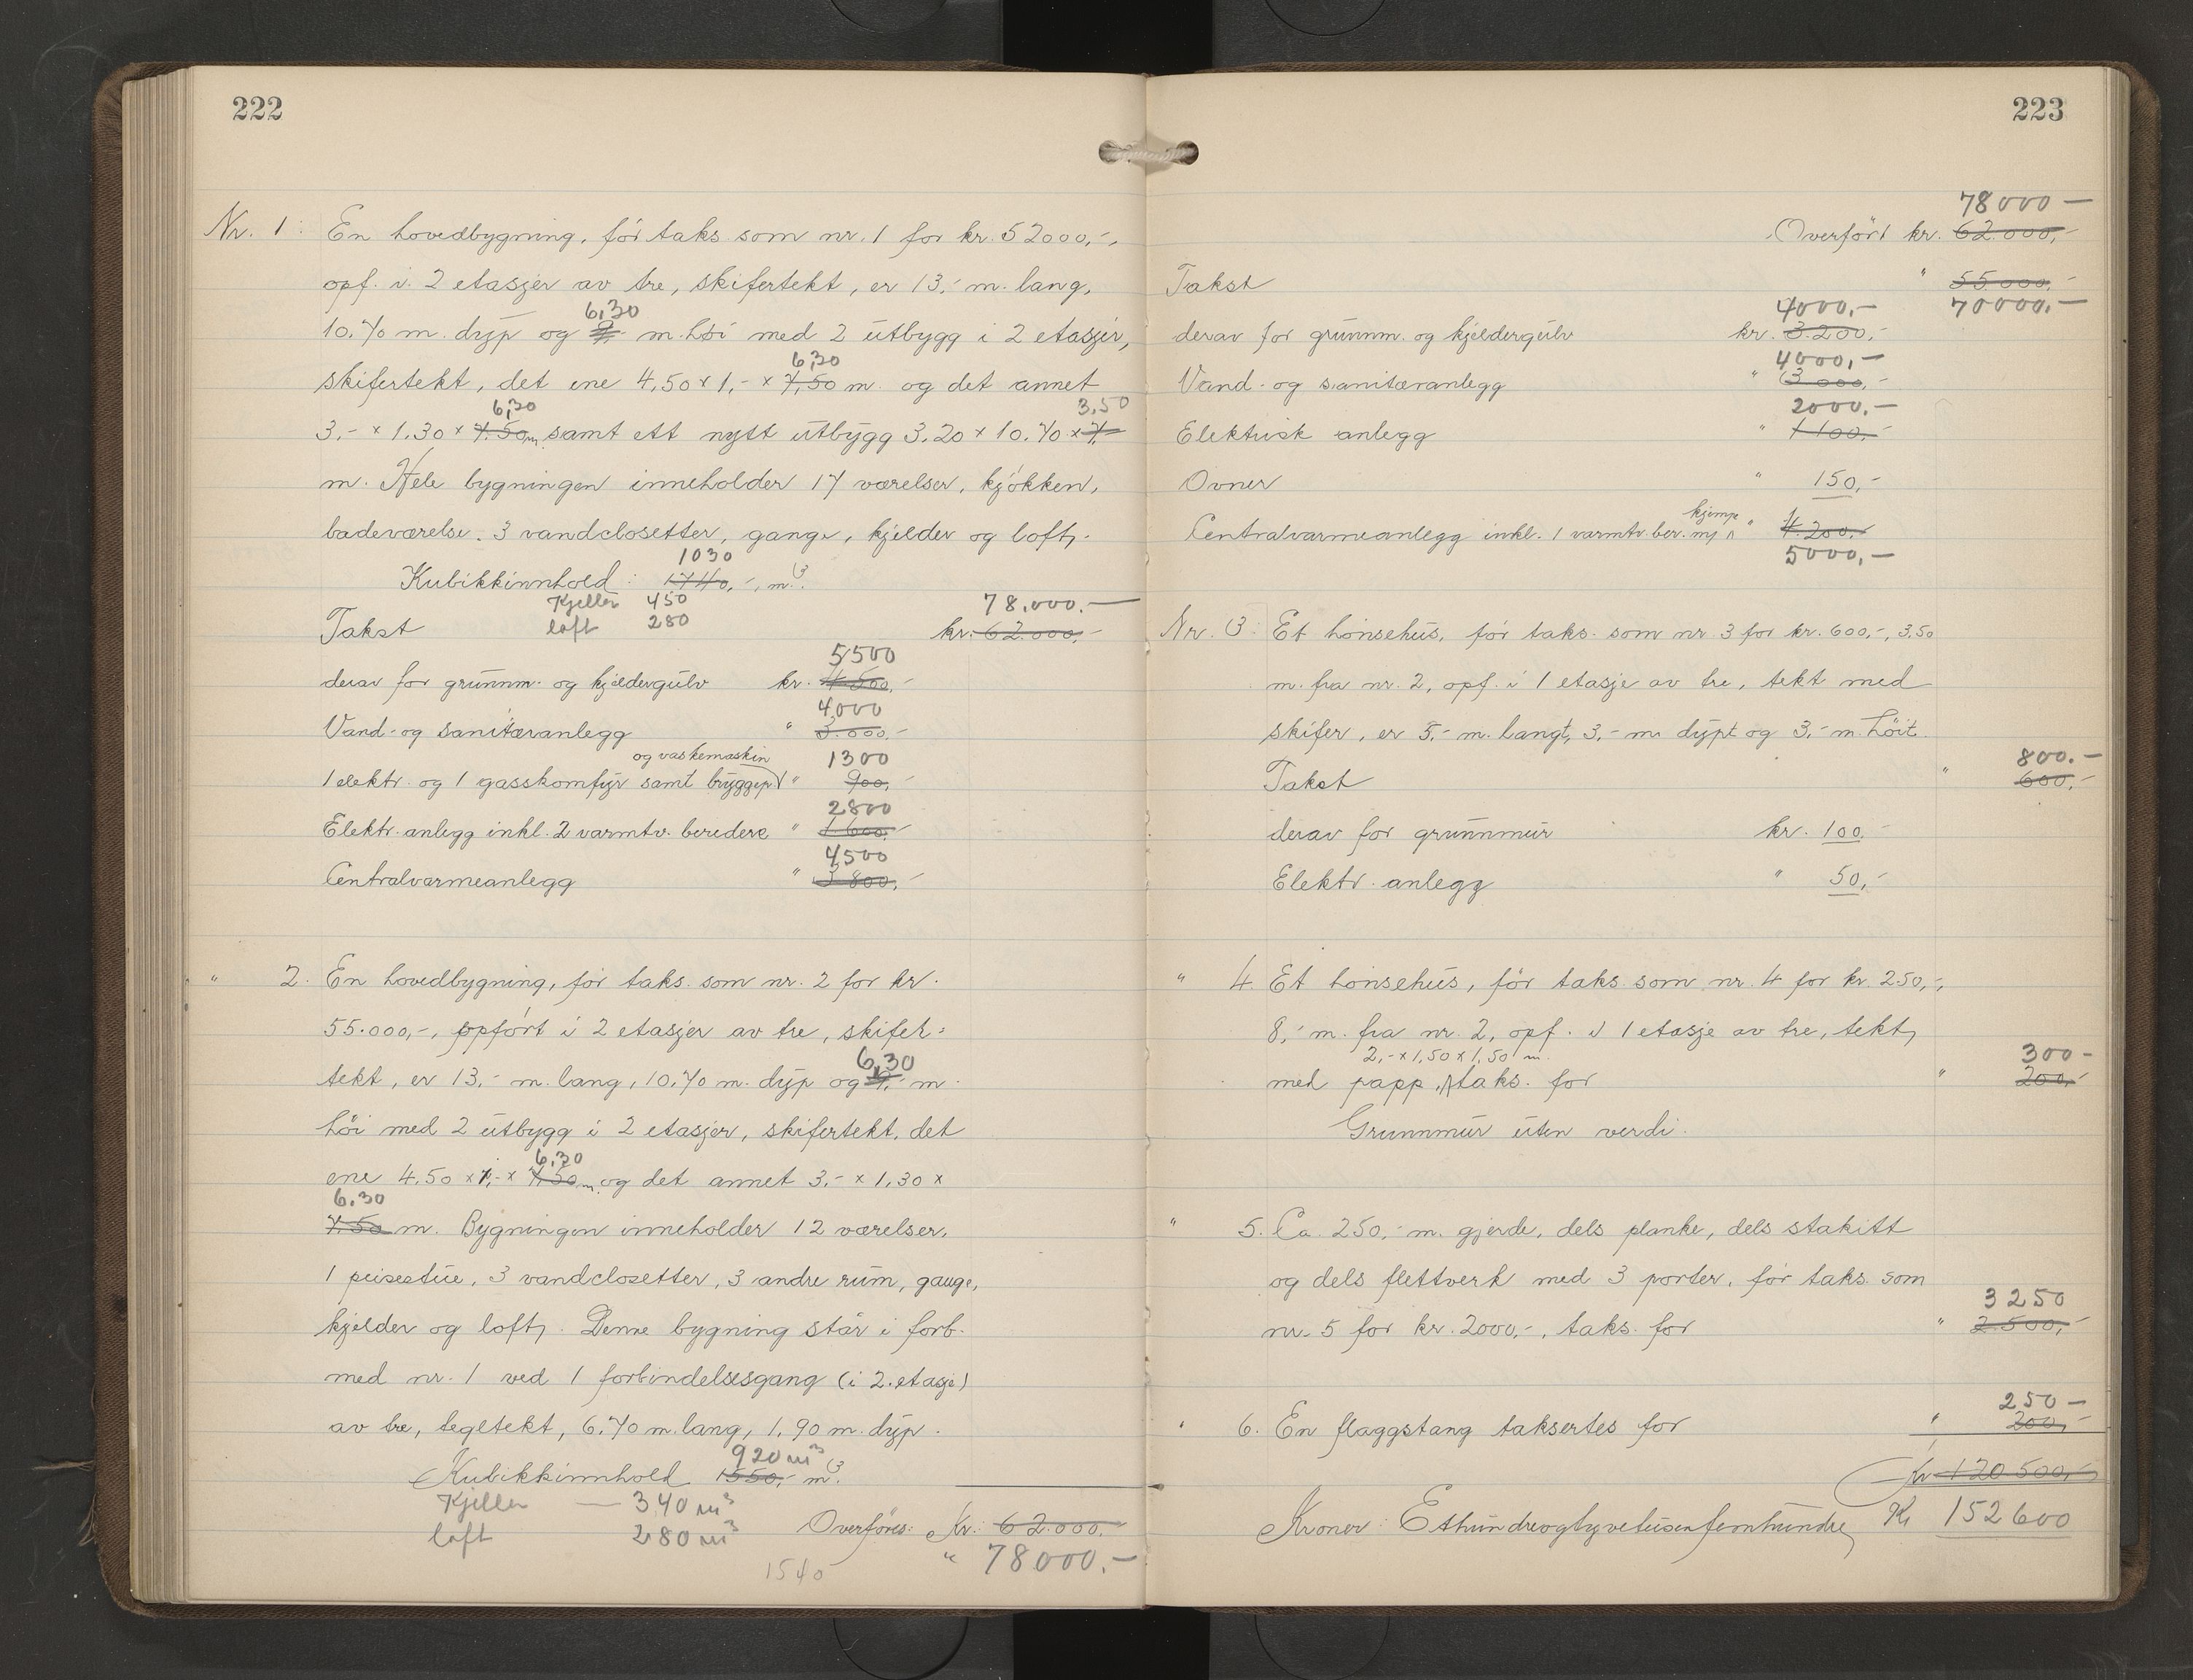 222
Nr. 1: En hovedbygning, før taks. som nr. 1 for kr. 52000,-,
opf. i 2 etasjer av tre, skifertekt, er 13,- m. lang,
6,30
10.70 m. dyp og m. höi med 2 utbygg i 2 etasjer,
6,30
skifertekt, det ene 4,50 x 1,- x 7,50 m. og det annet
6,30 3,50
3,- x 1.30 x 7.50 m. samt ett nytt utbygg 3.20 x 10.70 x 7,-
m. Hele bygningen inneholder 17 værelser, kjøkken,
badeværelse, 3 vandclosetter, gange, kjelder og loft.
1030
Kubikkinnhold: 1740,-, m.3
Kjeller 450 78.000.-
Takst loft 280 kr. 62.000,-
5500
derav for grunnm. og kjeldergulv kr. 4500,-
4000
Vand- og sanitæranlegg " 3.000,-
og vaskemaskin 1300
1 elektr. og 1 gasskomfyr samt bryggep. " 900,-
2800
Elektr. anlegg inkl. 2 varmtv. beredere " 1600,-
4500
Centralvarmeanlegg " 3800,-
" 2. En hovedbygning, før taks. som nr. 2 for kr.
55.000,-, oppført i 2 etasjer av tre, skifer=
6,30
tekt, er 13,- m. lang, 10,70 m. dyp og 9,- m.
höi med 2 utbygg i 2 etasjer, skifertekt, det
6,30
ene 4.50 x 1,- x 7.50 m. og det annet 3,- x 1,30 x
6,30
7.50 m. Bygningen inneholder 12 værelser,
1 peisestue, 3 vandclosetter, 3 andre rum, gange,
kjelder og loft. Denne bygning står i forb.
med nr. 1 ved 1 forbindelsesgang (i 2. etasje)
av tre, tegltekt, 6,70 m. lang, 1,90 m. dyp.
920 m3
Kubikkinnhold 1550,- m.3
Kjeller — 340 m3
loft 280 m3 Overføres: Kr. 62.000.
1540 " 78000.-
223
78000 —
Overført kr. 62.000,-
Takst " 55.000,-
4000,- 70000.-
derav for grunnm. og kjeldergulv kr. 3.200,-
4000,-
Vand- og sanitæranlegg " 3000,-
2000,-
Elektrisk anlegg " 1100,-
Ovner " 150,-
kjemp
Centralvarmeanlegg inkl. 1 varmtv. ber. " 4.200,-
5000,-
Nr. 3: Et hønsehus, før taks. som nr. 3 for kr. 600,-, 3,50
m. fra nr. 2, opf. i 1 etasje av tre, tekt med
skifer, er 5,- m. langt, 3,- m. dypt og 3,- m. höit.
800.-
Takst " 600,-
derav for grunnmur kr. 100,-
Elektr. anlegg " 50,-
" 4. Et hønsehus, før taks. som nr. 4 for kr. 250,-,
8,- m. fra nr. 2, opf. i 1 etasje av tre, tekt
2,- x 1,50 x 1,50 m. 300 -
med papp, taks. for " 200,-
Grunnmur uten verdi.
" 5. Ca. 250,- m. gjerde, dels planke, dels stakitt
og dels flettverk med 3 porter, før taks. som
3250
nr. 5 for kr. 2000,-, taks. for " 2.500,-
250 -
" 6. En flaggstang taksertes for " 200,-
Kr 120 500,-
Kroner: Ethundreogtyvetusenfemhundre Kr 152600